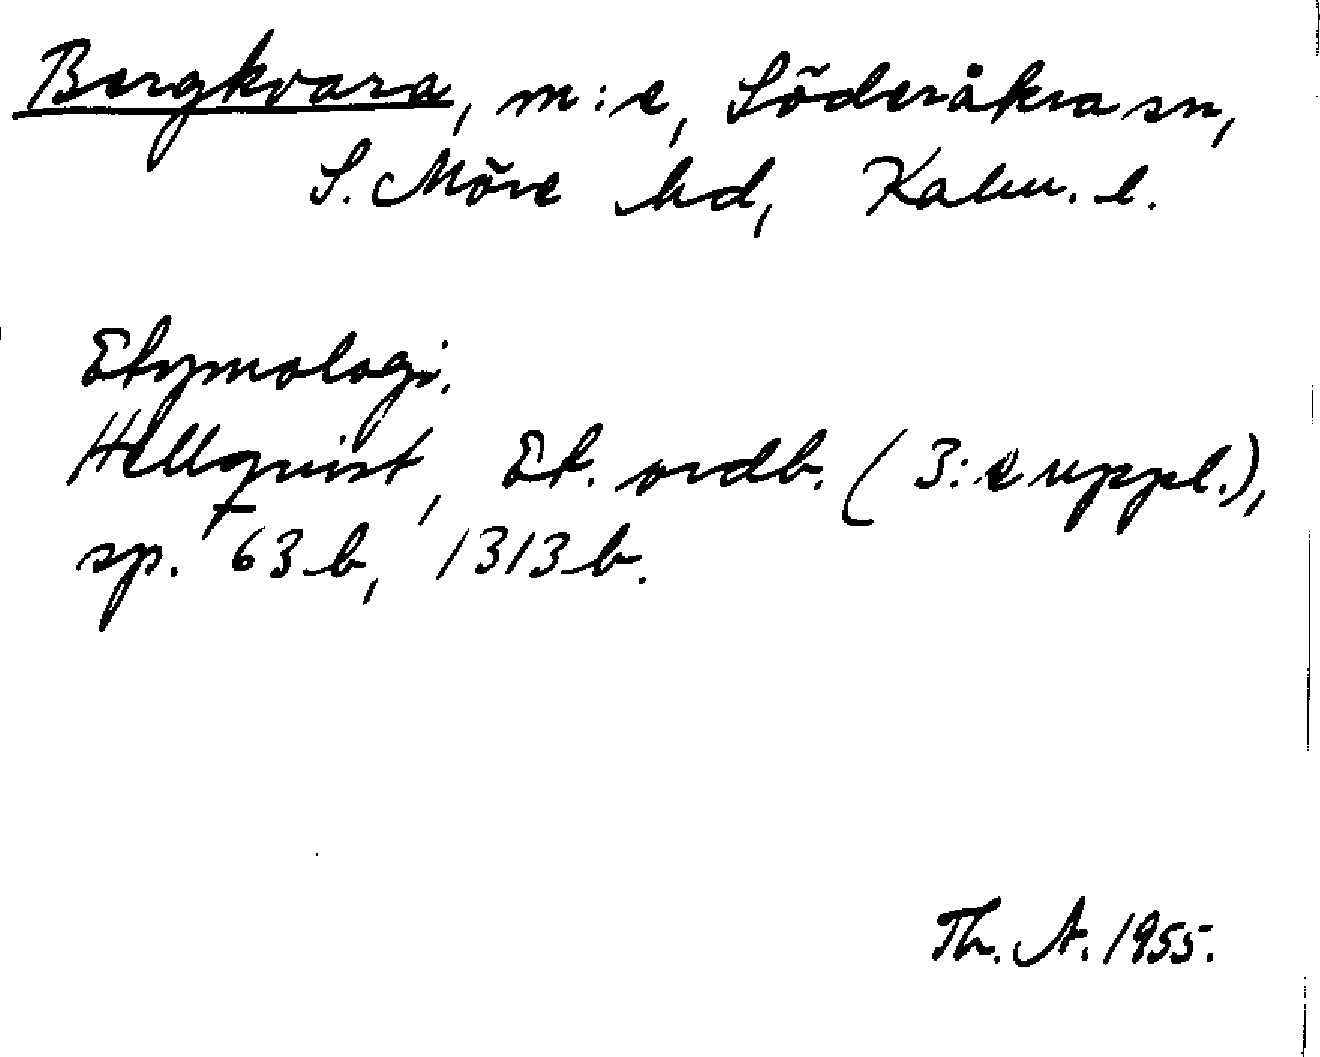 Bergkvara, m:e, Söderåkra sn,
S. Möre hd, Kalm. l.
Etymologi.
Hellquist, Et. ordb. (3: e uppl.),
sp. 63 b, 1313 b.
Th. A. 1955.